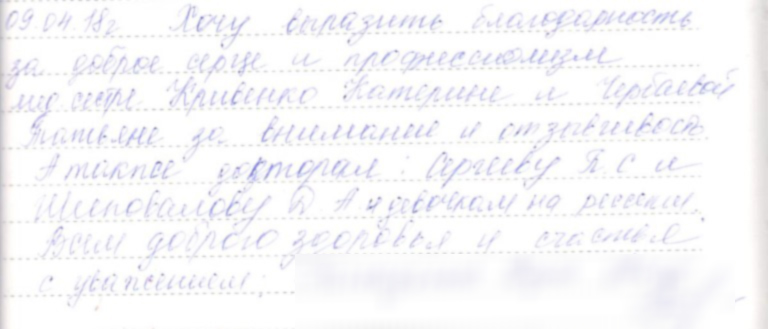 09.04.18г Хочу выразить благодарность
за доброе серце и професионализм
мед сестре Кривенко Катерине и Чербаевой
Татьяне за внимание и отзывчивость
А также докторам: Сергееву П. С и
Шаповалову Д А и девочкам на ресепшн.
Всем доброго здоровья и счастья
с уважением: